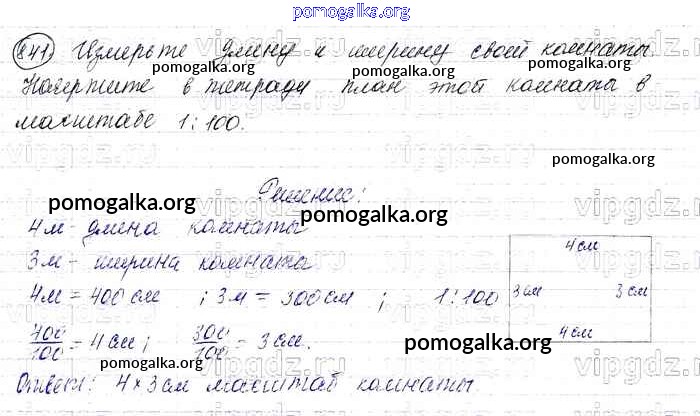 pomogalka.org
841) Измерьте длину и ширину своей комнаты.
pomogalka.org pomogalka.org
Начертите в тетради план этой комната в
масштабе 1:100.
pomogalka.org
pomogalka.org
vipgdz.ru
Решение:
pomogalka.org pomogalka.org
4м - длина комнаты
4 см
3м - ширина комната
3 см 3 см
4м = 400 см ; 3м = 300 см ; 1:100
400/100 = 4 см; 300/100 = 3 см.
4 см
pomogalka.org pomogalka.org
Ответ: 4 × 3 см масштаб комнаты.
vipgdz.ru